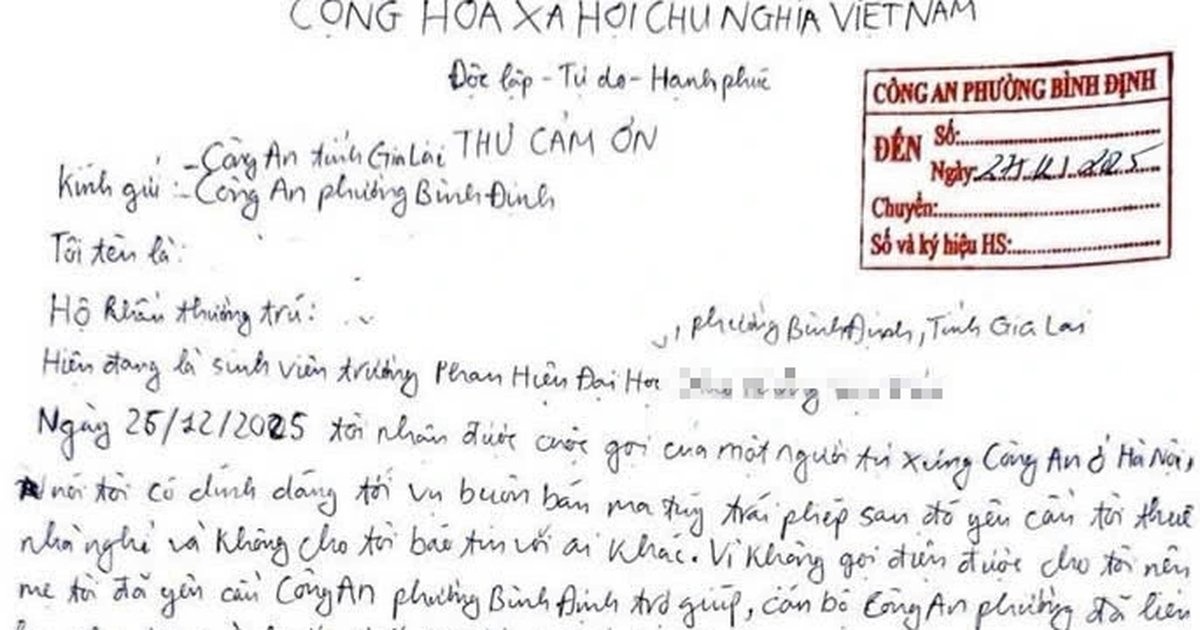 CỘNG HÒA XÃ HỘI CHỦ NGHĨA VIỆT NAM
Độc lập - Tự do - Hạnh phúc
THƯ CẢM ƠN
Kính gửi: - Công An tỉnh Gia Lai
- Công An phường Bình Định
CÔNG AN PHƯỜNG BÌNH ĐỊNH
ĐẾN
Số:
Ngày: 27/12/2025
Chuyển:
Số và ký hiệu HS:
Tôi tên là:
Hộ khẩu thường trú:
, phường Bình Định, Tỉnh Gia Lai
Hiện đang là sinh viên trường Phan Hiện Đại Học
Ngày 25/12/2025 tôi nhận được cuộc gọi của một người tự xưng Công An ở Hà Nội,
nói tôi có dính dáng tới vụ buôn bán ma túy trái phép sau đó yêu cầu tôi thuê
nhà nghỉ và không cho tôi báo tin với ai khác. Vì không gọi điện được cho tôi nên
mẹ tôi đã yêu cầu Công An phường Bình Định trợ giúp, cán bộ Công An phường đã liên